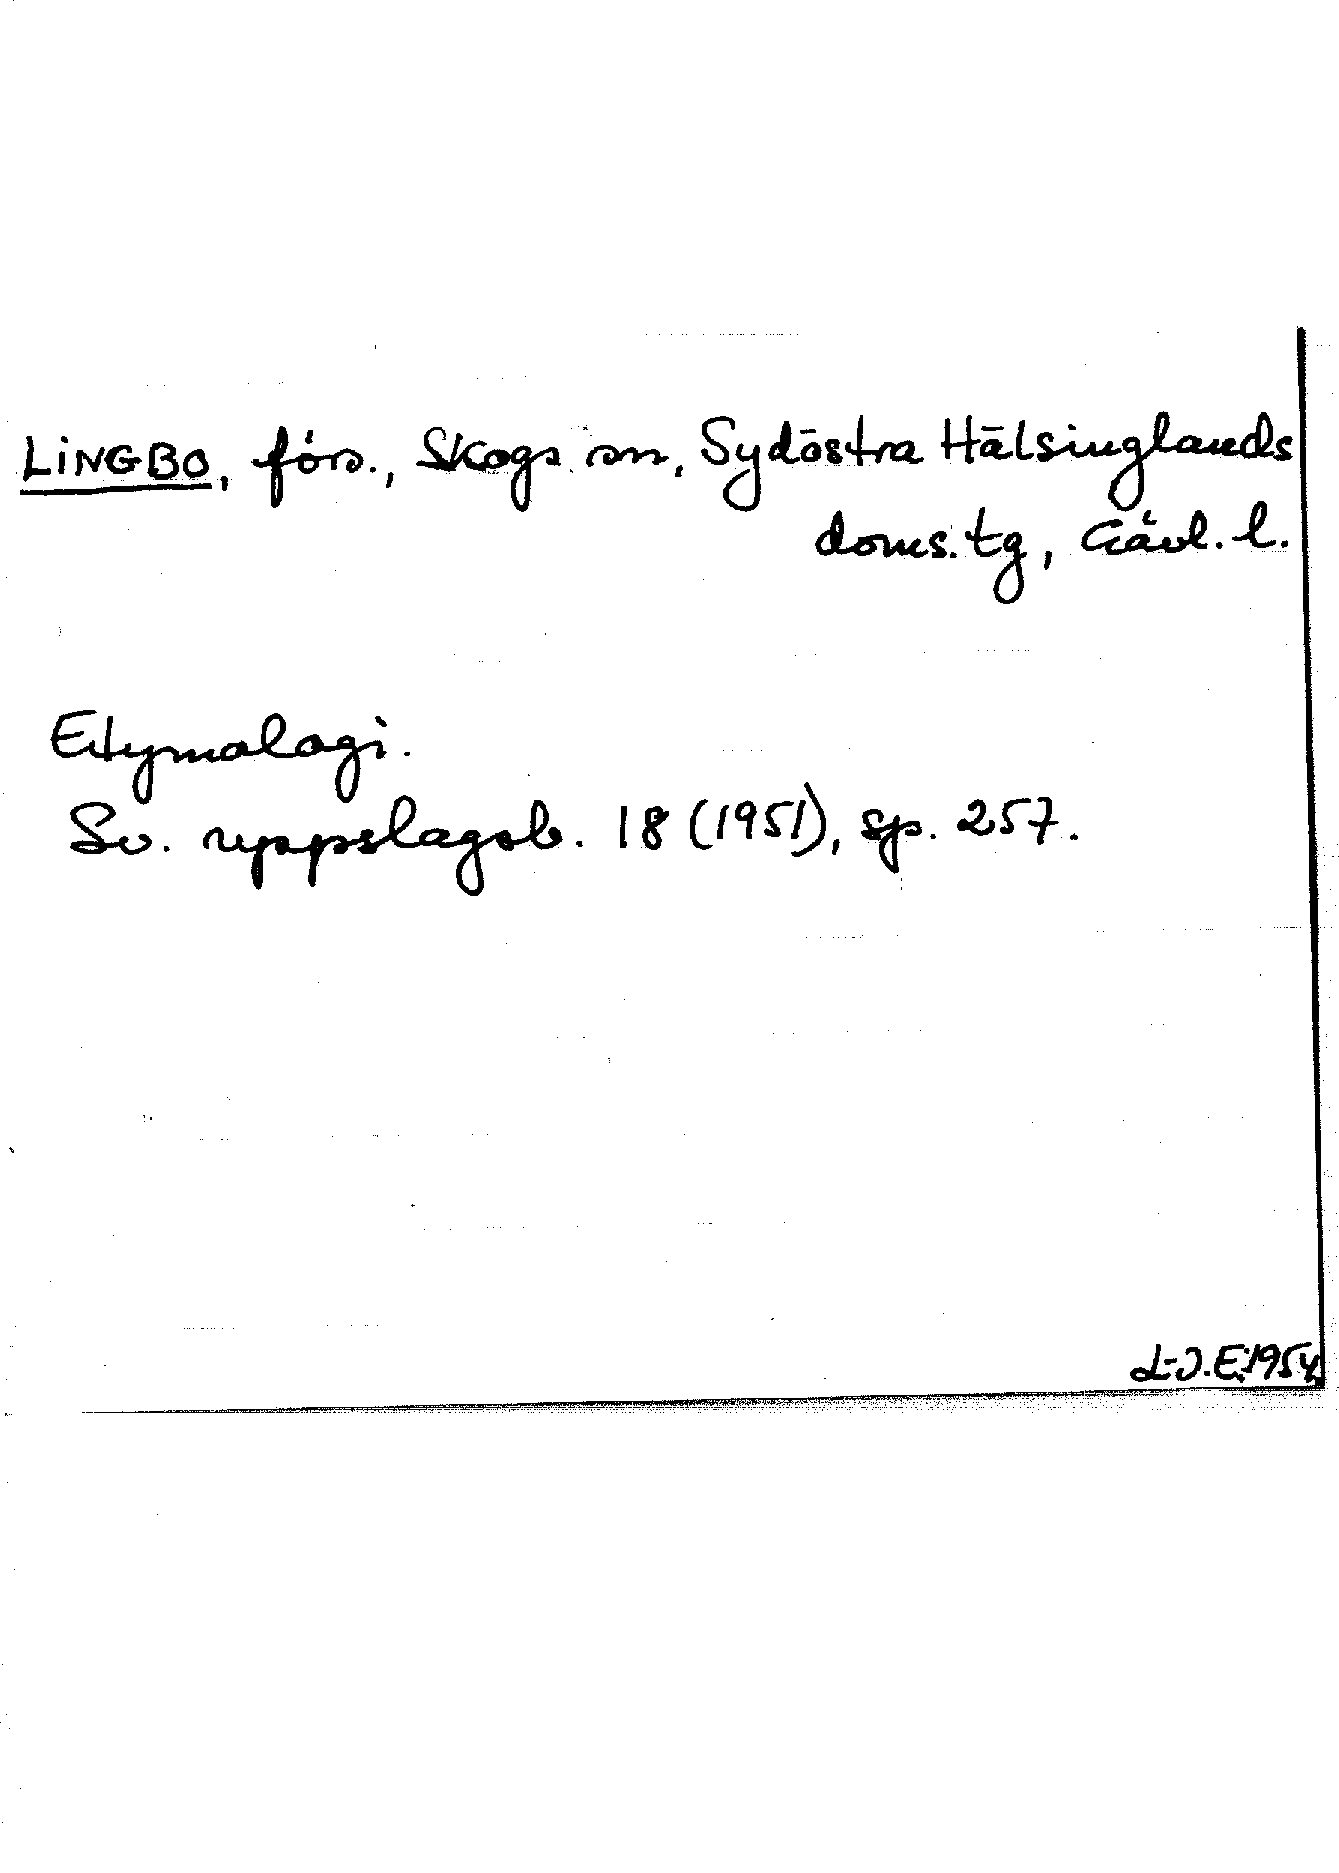 LINGBO, förs., Skogs sn, Sydöstra Hälsinglands
doms.tg, Gävl. l.
Etymologi.
Sv. uppslagsb. 18 (1951), sp. 257.
L-J.E. 1954